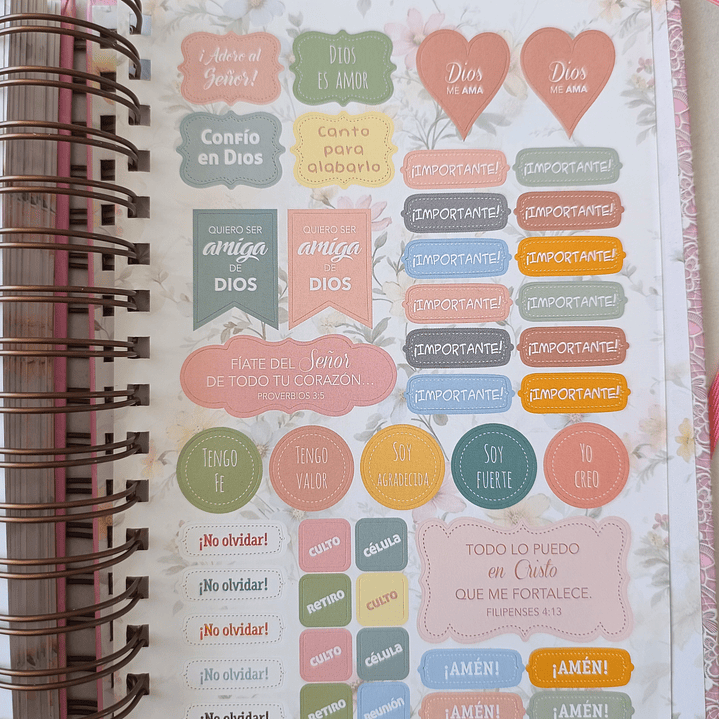 ¡Adoro al
Señor!
DIOS
ES AMOR
Dios
ME AMA
Dios
ME AMA
Confío
en Dios
Canto
para
alabarlo
¡IMPORTANTE!
¡IMPORTANTE!
¡IMPORTANTE!
¡IMPORTANTE!
¡IMPORTANTE!
¡IMPORTANTE!
¡IMPORTANTE!
¡IMPORTANTE!
¡IMPORTANTE!
¡IMPORTANTE!
¡IMPORTANTE!
¡IMPORTANTE!
QUIERO SER
amiga
DE
DIOS
QUIERO SER
amiga
DE
DIOS
FÍATE DEL Señor
DE TODO TU CORAZÓN...
PROVERBIOS 3:5
TENGO
FE
TENGO
VALOR
SOY
AGRADECIDA
SOY
FUERTE
YO
CREO
¡No olvidar!
¡No olvidar!
¡No olvidar!
¡No olvidar!
¡No olvidar!
CULTO
célula
RETIRO
CULTO
CULTO
célula
RETIRO
reunión
TODO LO PUEDO
en Cristo
QUE ME FORTALECE.
FILIPENSES 4:13
¡AMÉN!
¡AMÉN!
¡AMÉN!
¡AMÉN!